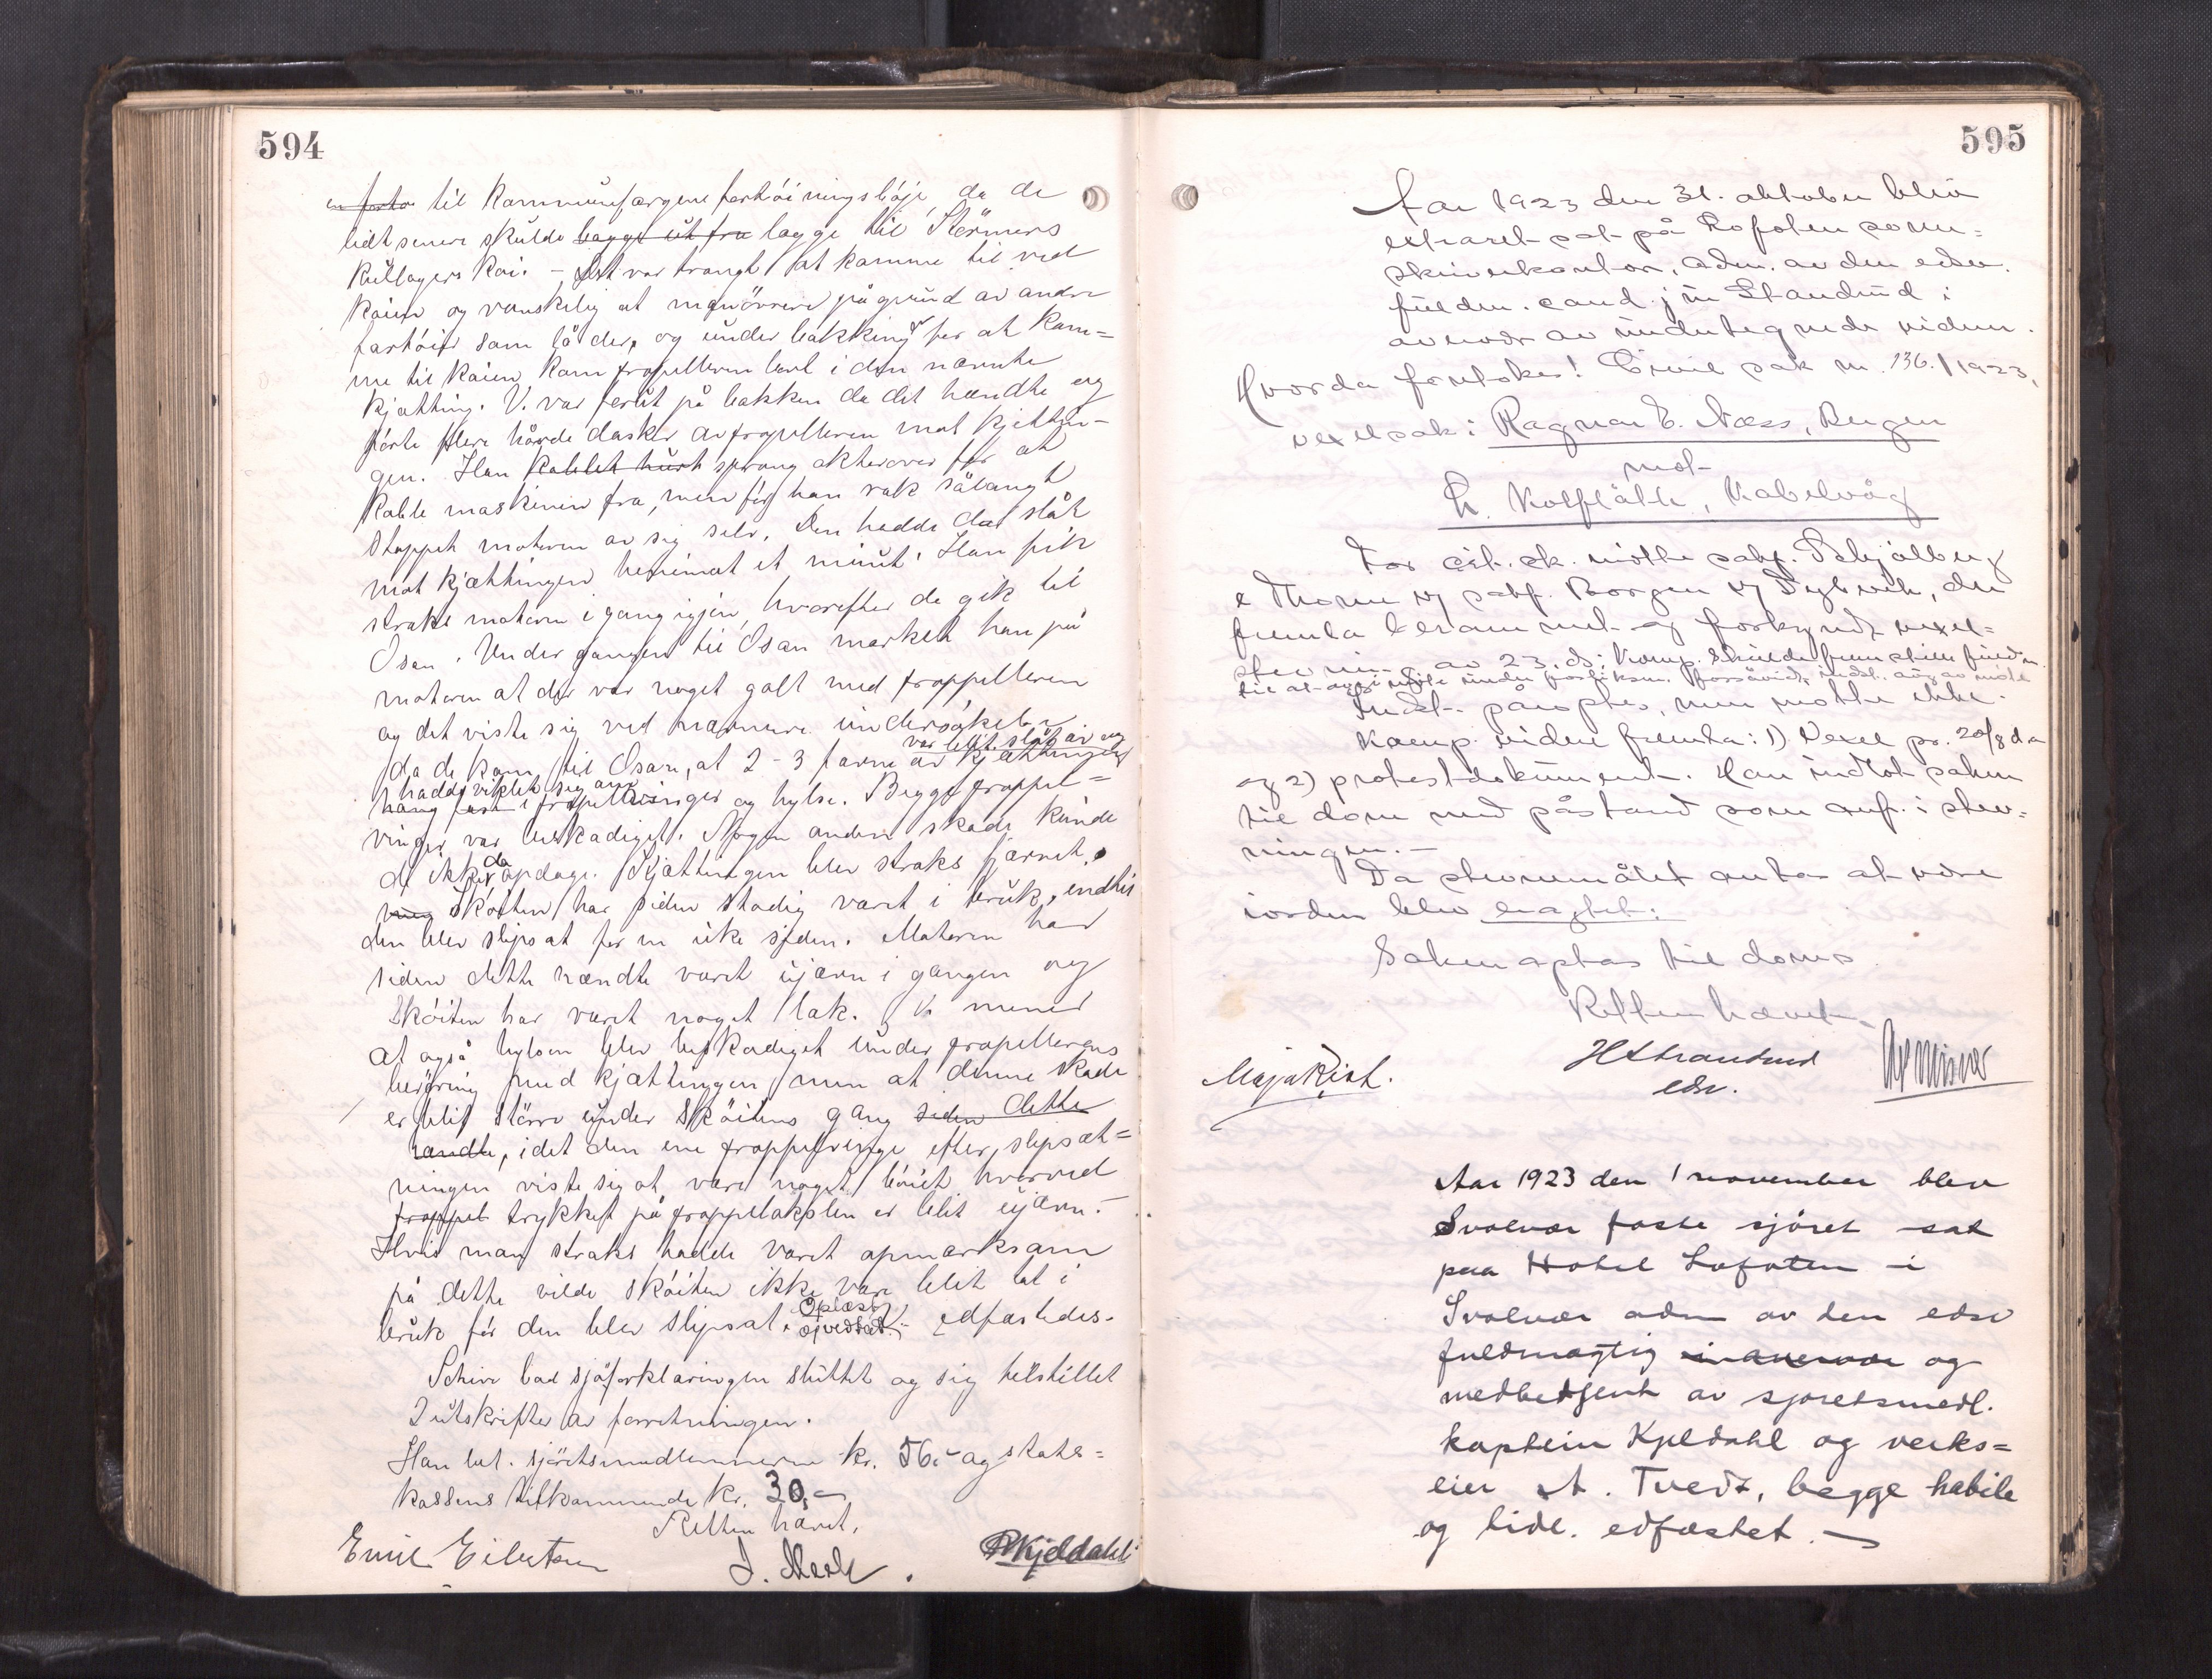 594
en forto til Kommunefærgens fortöiningsböje, da de
lidt senere skulde lægge ut fra lægge til Störmers
Kullagers Kai. - Det var trangt at komme til ved
Kaien og vanskelig at manövrere på grund av andre
fartöier som lå der, og under bakking for at kom=
me til Kaien kom propelleren bort i den nævnte
kjætting. V. var forut på bakken da det hændte og
hörte flere hårde dasker av propelleren mot kjettin-
gen. Han koblet hurt sprang akterover for at
koble maskinen fra, men før han rak sålangt
stoppet motoren av sig selv. Den hadde da slåt
mot kjættingen henimot et minut. Han fik
straks motoren i gang igjen, hvorefter de gik til
Osan. Under gangen til Osan merket han på
motoren at der var noget galt med proppelleren
og det viste sig ved nærmere undersökelse
da de kom til Osan, at 2-3 favne av kjættingen
var blit slåt av og
hadde viklet sig om
hang fast i propelvinger og hylse. Begge proppel=
vinger var beskadiget. Nogen anden skade kunde
de ikke da opdage. Kjættingen blev straks fjernet,
men Sköiten har siden stadig været i bruk, indtil
den blev slipsat for en uke siden. Motoren har
siden dette hændte været ujævn i gangen og
Sköiten har været noget læk. V. mener
at også hylsen blev beskadiget under propellerens
beröring med kjættingen, men at denne skade
er blit större under Sköitens gang siden dette
hændte, idet den ene proppelvinge efter slipsæt=
ningen viste sig at være noget böiet hvorved
proppel trykket på proppelakslen er blit ujævn. -
Hvis man straks hadde været opmerksom
på dette vilde sköiten ikke være blit tat i
bruk för den blev slipsat. Oplæst vedtat. - Edfæstedes.
Schive bad sjöforklaringen sluttet og sig tilstillet
2 utskrifter av forretningen.
Han bet. sjöretsmedlemmerne kr. 56.- og stats=
kassens tilkommende kr. 30,-
Retten hævet.
Emil Eilertsen
PKjeldahl
595
Aar 1923 den 31. oktober blev
extraret sat på Lofoten soren=
skriverkontor, adm. av den edsv.
fuldm. cand. jur Strandrud i
nærvær av undertegnede vidner.
Hvorda foretokes: Civil sak nr. 136/1923,
vexelsak: Ragnar E. Næss, Bergen
mot
Kabelvåg
For cit. sk. mötte sakf. Schjölberg
e Thorne vj sakf. Borgen vj Dybwik, der
fremla berammet og forkyndt vexel=
stevning av 23. ds.
Indst. påroptes, men mötte ikke.
Komp. viden fremla: 1) Vexel pr. 20/8 d.a
og 2) protestdokument. Han indlot saken
til dom med påstand som anf. i stev-
ningen. -
Da stevnemålet antas at være
iorden blev eragtet:
Saken optas til doms
Retten hævet
Maja Rist.
HStrandrud
edsv.
Aar 1923 den 1 november blev
Svolvær faste sjöret sat
paa Hotel Lofoten i
Svolvær adm av den edsv
fuldmægtig i nærvær og
medbetjent av sjoretsmedl.
kaptein Kjeldahl og verks=
eier A. Tvedt, begge habile
og tidl. edfæstet. -